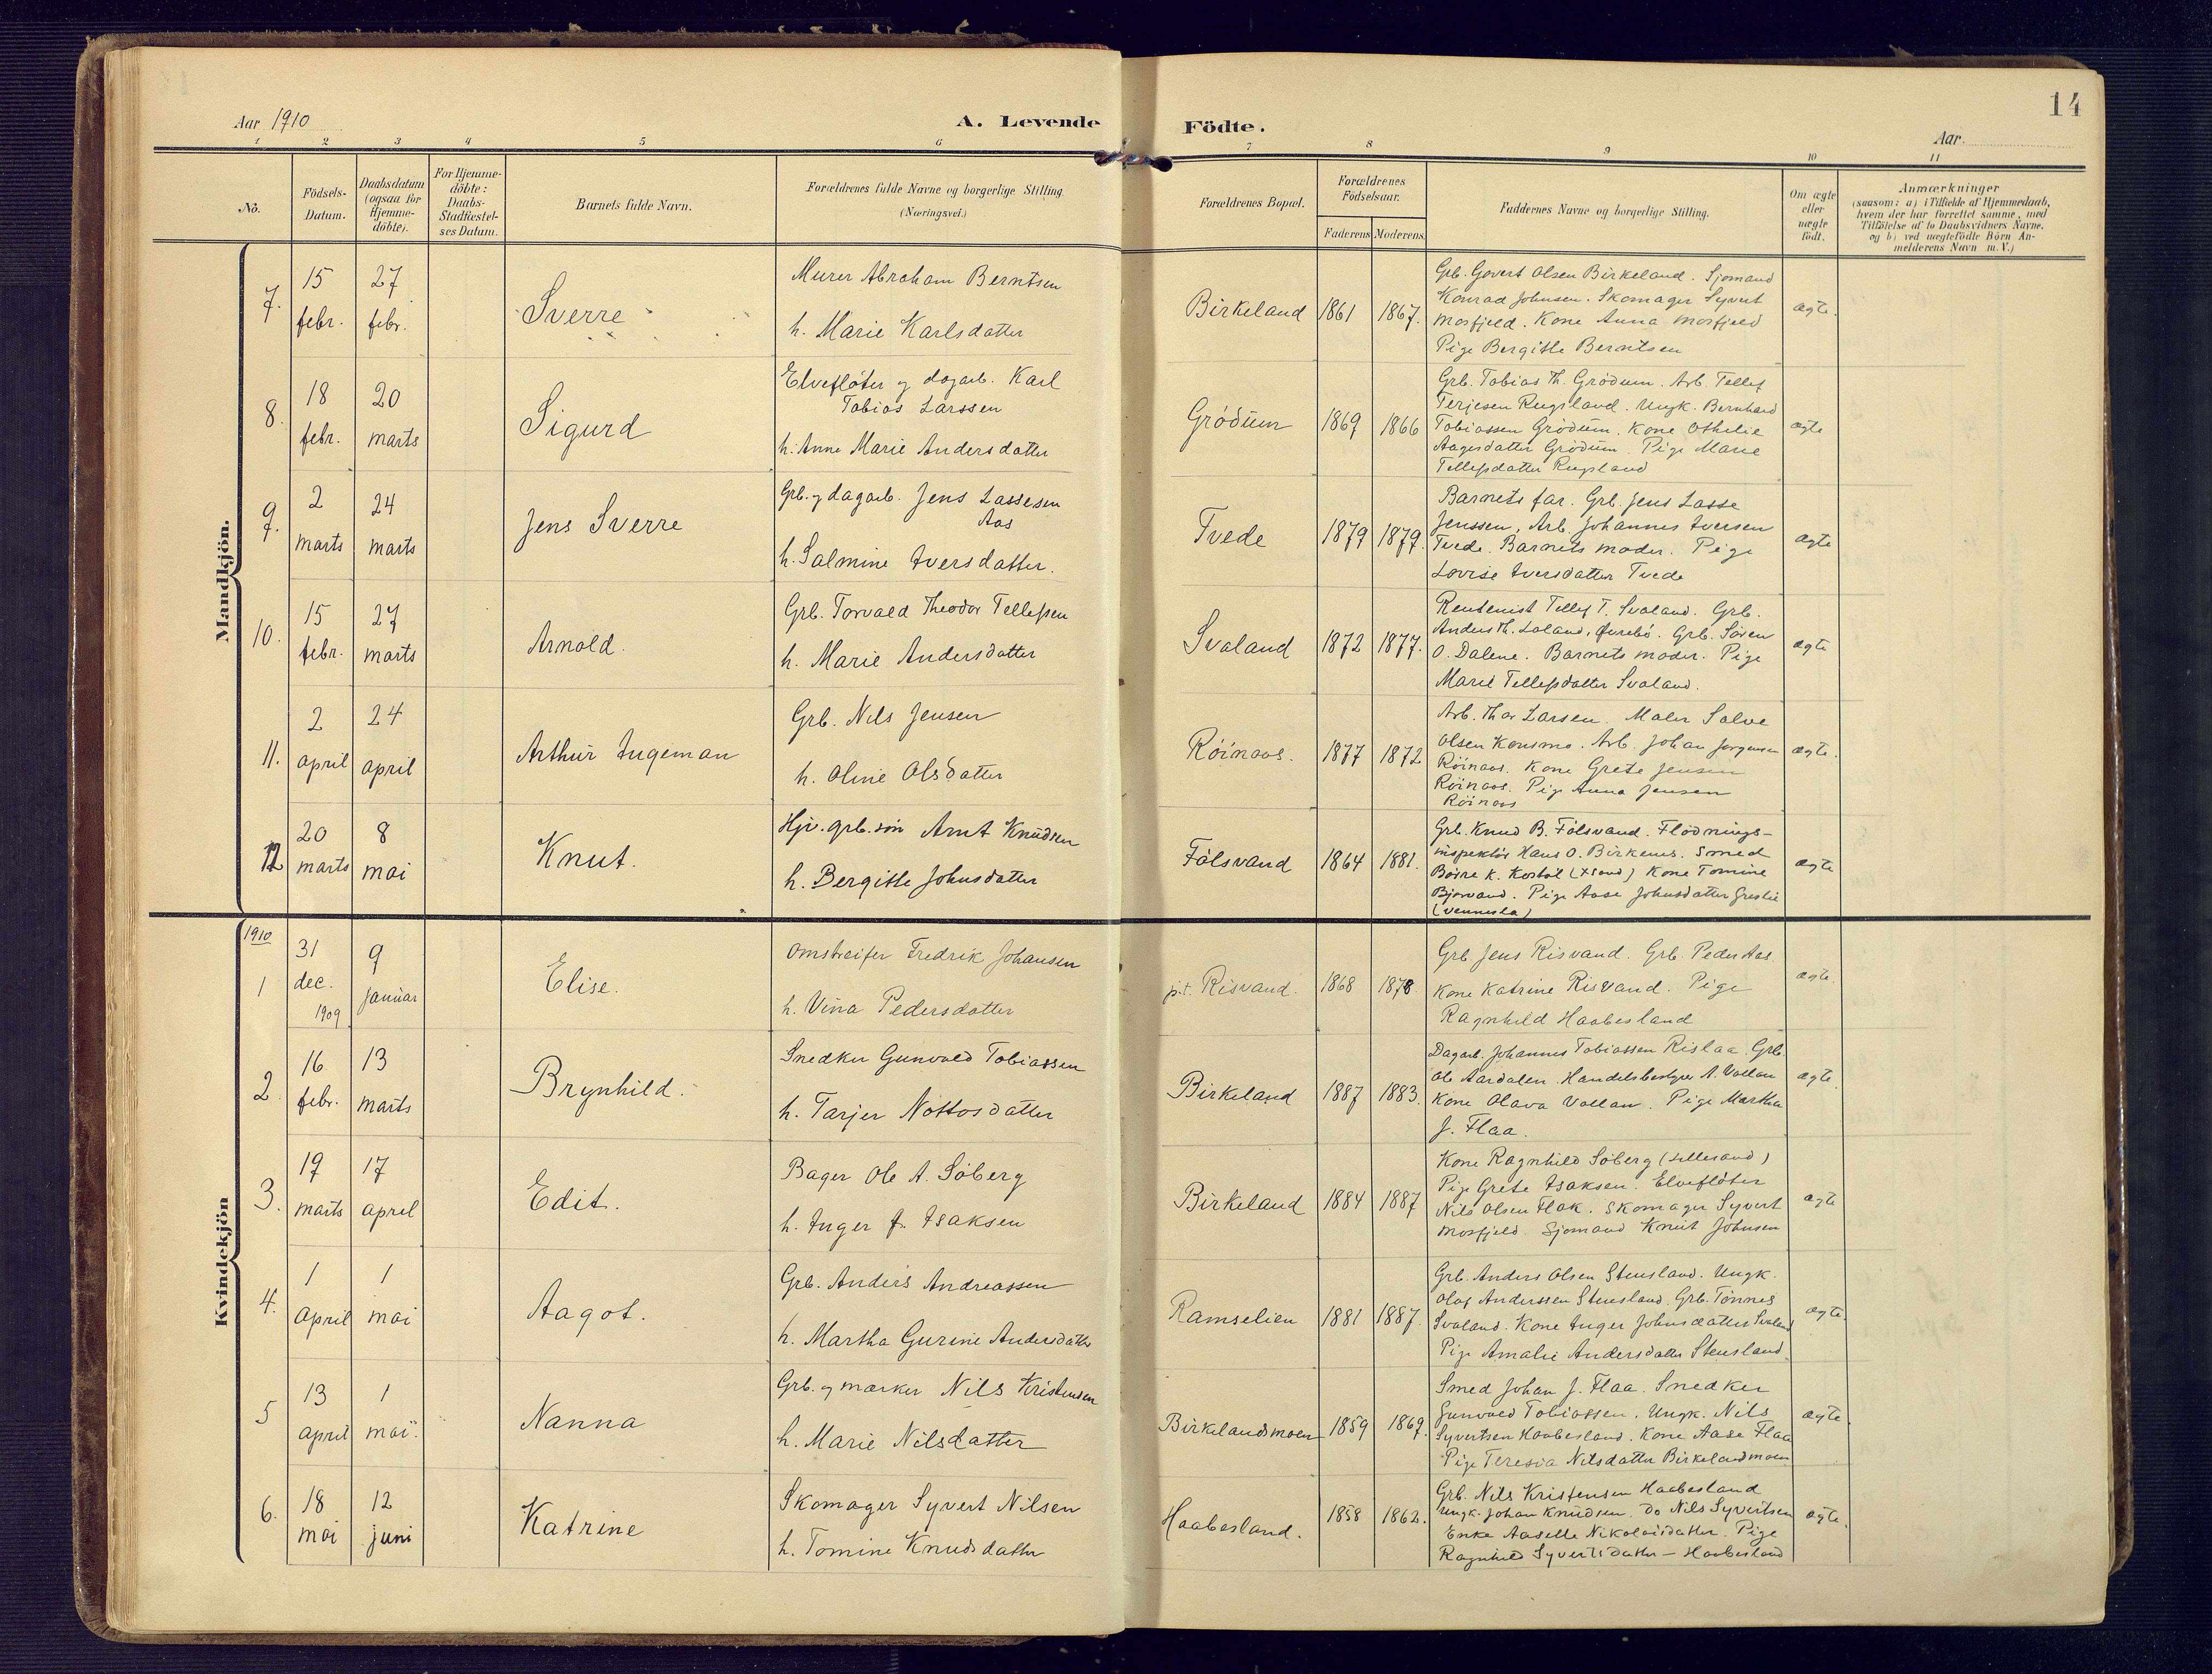 14
Aar 1910
A. Levende Födte.
Aar
1 2 3 4 5 6 7 8 9 10 11
No.
Födsels-Datum.
Daabsdatum (ogsaa for Hjemme-döbte).
For Hjemme-döbte: Daabs-Stadfæstel-ses Datum.
Barnets fulde Navn.
Forældrenes fulde Navne og borgerlige Stilling. (Næringsvei.)
Forældrenes Bopæl.
Forældrenes Födselsaar.
Faderens Moderens
Faddernes Navne og borgerlige Stilling.
Om ægte eller uægte födt.
Anmærkninger
(saasom: a) i Tilfælde af Hjemmedaab,
hvem der har forrettet samme, med
Tilföielse af to Daabsvidners Navne,
og b) ved uægtefödte Börn An-
melderens Navn m. V.)
Mandkjön.
7. 15 febr. 27 febr. Sverre
Murer Abraham Berntsen
h. Marie Karlsdatter
Birkeland 1861 1867.
Grb. Govert Olsen Birkeland. Sjømand
Konrad Johnsen. Skomager Syvert
Mosfjeld. Kone Anna Mosfjeld
Pige Bergitte Berntsen
ægte.
8. 18 febr. 20 marts Sigurd
Elvefløter og dagarb. Karl
Tobias Larssen
h. Anne Marie Andersdatter
Grødum 1869 1866
Grb. Tobias Th. Grødum. Arb. Tellef
Terjesen Rugsland. Ungk. Bernhard
Tobiassen Grødum. Kone Othelie
Aagesdatter Grødum. Pige Marie
Tellefsdatter Rugsland
ægte
9. 2 marts 24 marts Jens Sverre
Grb. og dagarb. Jens Lassesen
Aas
h. Salmine Iversdatter.
Tvede 1879 1879.
Barnets far. Grb. Jens Lasse
Jenssen, Arb. Johannes Iversen
Tvede. Barnets moder. Pige
Lovise Iversdatter Tvede
ægte
10. 15 febr. 27 marts Arnold.
Grb. Torvald Theodor Tellefsen
h. Marie Andersdatter
Svaland 1872 1877.
Rentenist Tellef T. Svaland. Grb.
Anders Th. Laland, Øvrebø. Grb. Søren
O. Dalene. Barnets moder. Pige
Marie Tellefsdatter Svaland.
ægte
11. 2 april 24 april Arthur Ingeman
Grb. Nils Jensen
h. Oline Olsdatter
Røinaas. 1877 1872
Arb. Thor Larsen. Maler Salve
Olsen Konsmo. Arb. Johan Jørgensen
Røinaas. Kone Grete Jensen
Røinaas. Pige Anna Jensen
Røinaas
ægte.
12 20 marts 8 mai Knut.
Hjv. grb. søn Arnt Knudsen
h. Bergitte Johnsdatter
Fölsvand 1864 1881.
Grb. Knud B. Fölsvand. Flødnings-
inspektør Hans O. Birkenes. Smed
Børre K. Kostøl (Xsand) Kone Tomine
Bjorvand. Pige Aase Johnsdatter Greslie
(Vennesla)
ægte
Kvindekjön
1910
1 31 dec. 1909 9 januar Elise.
Omstreifer Fredrik Johansen
h. Vina Pedersdatter
p.t. Risvand. 1868 1878
Grb. Jens Risvand. Grb. Peder Aas
Kone Katrine Risvand. Pige
Ragnhild Haabesland
ægte.
2 16 febr. 13 marts Brynhild.
Snedker Gunvald Tobiassen
h. Tarjer Nottosdatter
Birkeland 1887 1883.
Dagarb. Johannes Tobiassen Rislaa. Grb.
Ole Aardalen. Handelsbestyrer A. Vollan
Kone Olava Vollan. Pige Martha
J. Flaa.
ægte.
3. 19 marts 17 april Edit.
Bager Ole A. Søberg
h. Inger J. Isaksen
Birkeland 1884 1887
Kone Ragnhild Søberg (Lillesand)
Pige Grete Isaksen. Elvefløter
Nils Olsen Flak. Skomager Syvert
Mosfjeld. Sjomand Knut Johnsen
ægte
4. 1 april 1 mai Aagot.
Grb. Anders Andreassen
h. Martha Gurine Andersdatter
Ramselien 1881 1887.
Grb. Anders Olsen Stensland. Ungk.
Olaf Anderssen Stensland. Grb. Tønnes
Svaland. Kone Inger Johnsdatter Svaland
Pige Amalie Andersdatter Stensland.
ægte.
5 13 april 1 mai. Nanna
Grb. og mærker Nils Kristensen
h. Marie Nilsdatter
Birkelandsmoen 1859 1869.
Smed Johan J. Flaa. Snedker
Gunvald Tobiassen. Ungk. Nils
Syvertsen Haabesland. Kone Aase Flaa
Pige Teresia Nilsdatter Birkelandmoen
ægte.
6. 18 mai 12 juni Katrine
Skomager Syvert Nilsen
h. Tomine Knudsdatter
Haabesland. 1858 1862.
Grb. Nils Kristensen Haabesland
Ungk. Johan Knudsen. Do Nils Syvertsen
Enke Aaselle Nikolaisdatter. Pige
Ragnhild Syvertsdatter - Haabesland
ægte.